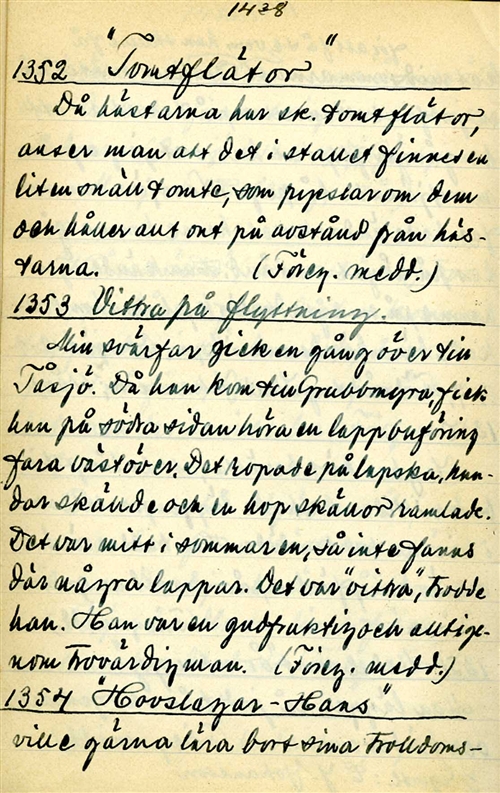 1438
1352 "Tomtflätor"
Då hästarna har sk. tomtflätor,
anser man att det i stallet finnes en
liten snäll tomte, som pysslar om dem
och håller allt ont på avstånd från häs-
tarna. (Föreg. medd.)
1353 Vittra på flyttning.
Min svärfar gick en gång över till
Tåsjö. Då han kom till Grubbmyra, fick
han på södra sidan höra en lappbuföring
fara västöver. Det ropade på lapska, hun-
dar skällde och en hop skällor ramlade.
Det var mitt i sommaren, så inte fanns
där några lappar. Det var "vittra", trodde
han. Han var en gudfruktig och alltige-
nom trovärdig man. (Föreg. medd.)
1354 "Hovslagar-Hans"
ville gärna lära bort sina trolldoms-